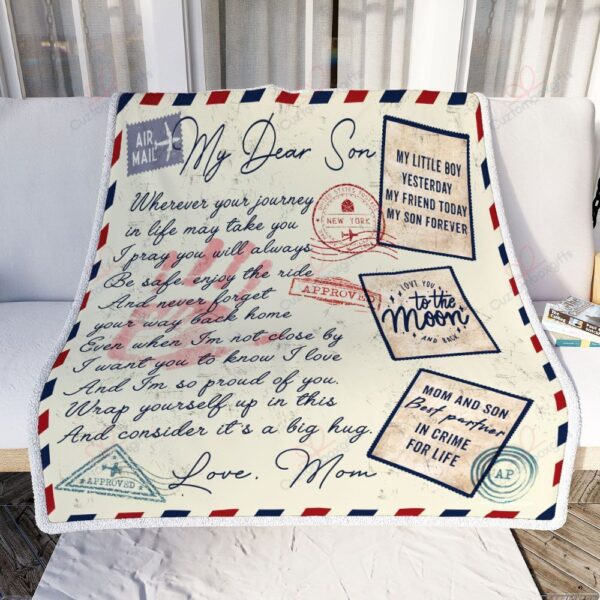 AIR
MAIL
My Dear Son
Wherever your journey
in life may take you
I pray you will always
Be safe, enjoy the ride
And never forget
your way back home
Even when I'm not close by
I want you to know I love
And I'm so proud of you.
Wrap yourself up in this
And consider it's a big hug.
Love, Mom
NEW YORK
APPROVED
MY LITTLE BOY
YESTERDAY
MY FRIEND TODAY
MY SON FOREVER
LOVE YOU
to the
Moon
AND BACK
MOM AND SON
Best partner
IN CRIME
FOR LIFE
APPROVED
AP